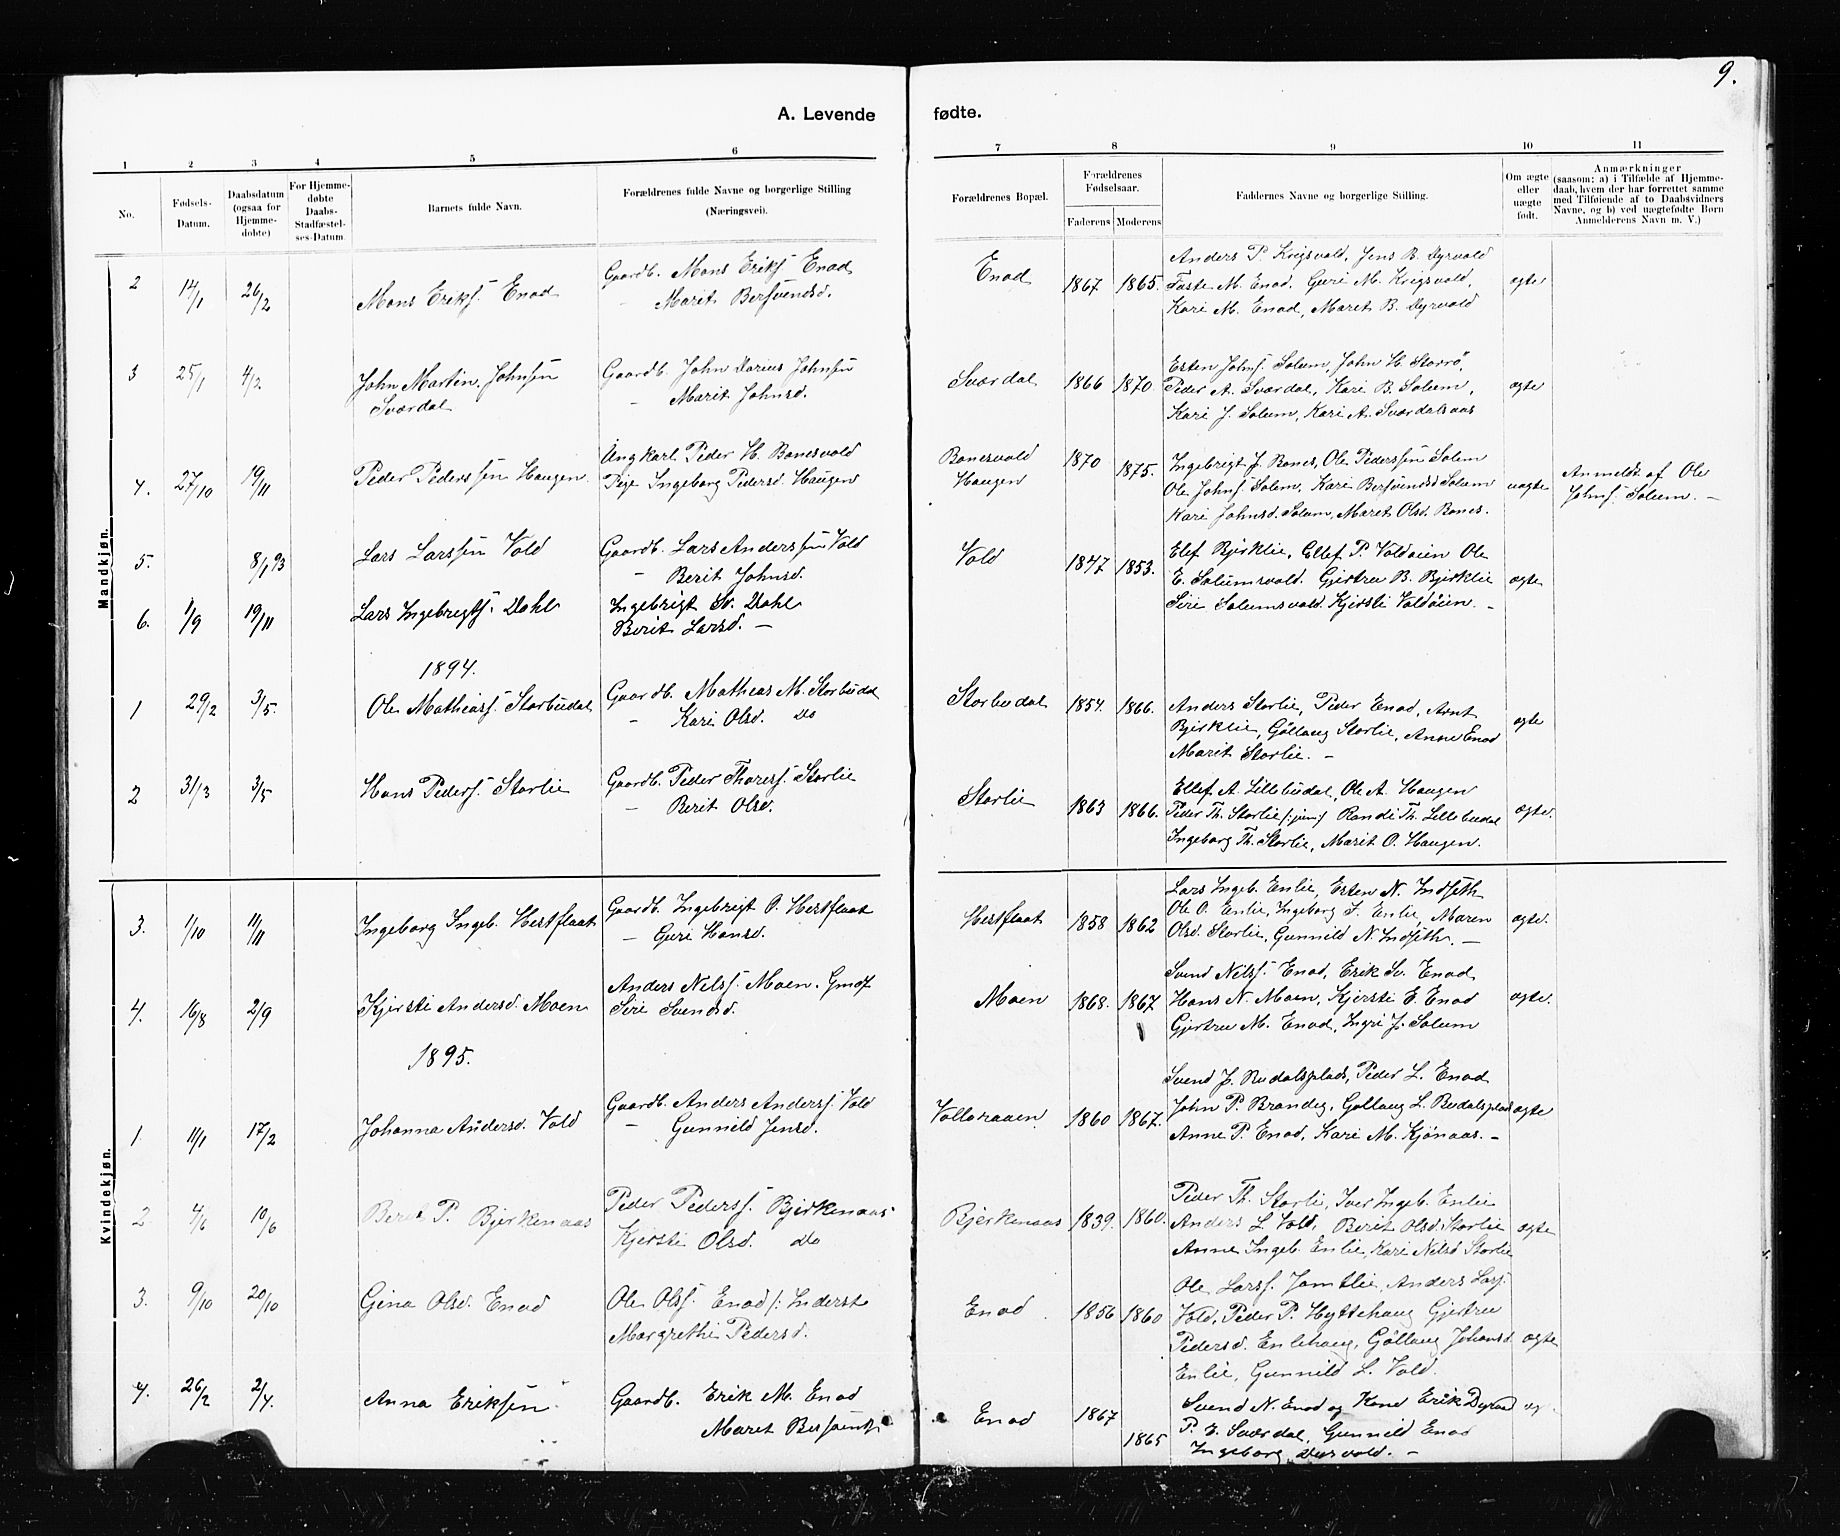 9.
A. Levende fødte.
1 2 3 4 5 6 7 8 9 10 11
No.
Fødsels-
Datum.
Daabsdatum
(ogsaa for
Hjemme-
døbte)
For Hjemme-
døbte
Daabs-
Stadfæstel-
ses-Datum.
Barnets fulde Navn.
Forældrenes fulde Navne og borgerlige Stilling
(Næringsvei).
Forældrenes Bopæl.
Forældrenes
Fødselsaar.
Faderens Moderens
Faddernes Navne og borgerlige Stilling.
Om ægte
eller
uægte
født.
Anmærkninger
(saasom: a) i Tilfælde af Hjemme-
daab, hvem der har forrettet samme
med Tilføiende af to Daabsvidners
Navne, og b) ved uægtefødte Børn
Anmelderens Navn m. V.)
Mandkjøn.
2 14/1 26/2 Mons Eriks. Enod
Gaardb. Mons Eriks. Enod
– Marit Bersvendsd.
Enod 1867 1865.
Anders P. Krigsvold, Jens B. Dyrvold
Faste M. Enod. Guri M. Krigsvold,
Kari M. Enod, Maret B. Dyrvold
ægte
3 25/1 4/2 John Martin Johnsen
Sværdal
Gaardb. John Darius Johnsen
– Marit Johnsd.
Sværdal 1866 1870.
Esten Johns. Solum, John H. Storrø,
Peder A. Sværdal, Kari B. Solum,
Kari J. Solum, Kari A. Sværdalsaas
ægte
4. 27/10 19/11 Peder Pederssen Haugen.
Ungkarl Peder H. Bonesvold
Pige Ingeborg Pedersd. Haugen
Bonesvold
Haugen
1870 1875.
Ingebrigt J. Bones, Ole Pederssen Solem
Ole Johns. Solem, Kari Bersvendsd Solum
Kari Johnsd. Solum, Maret Olsd. Bones.
uægte
Anmeldt af Ole
Johns. Solum. –
5. 8/1 93 Lars Larssen Vold
Gaardb. Lars Anderssen Vold
– Berit Johnsd.
Vold 1847 1853.
Elef Bjirklie, Ellef P. Voldøien Ole
E. Solumsvold. Gjertru B. Bjirklie
Siri Solumsvold. Kjersti Voldøien. –
ægte
6. 1/9 19/11 Lars Ingebrigts. Dahl
Ingebrigt Sv. Dahl
Berit Larsd. –
1894.
1 29/2 3/5. Ole Mathiass. Storbudal
Gaardb. Mathias M. Storbudal
– Kari Olsd. do
Storbudal 1854. 1866.
Anders Storlie, Peder Enod, Arnt
Bjirklie, Gøllaug Storlie, Anne Enod
Marit Storlie. –
ægte
2 31/3 3/5 Hans Peders. Storlie
Gaardb. Peder Thoress. Storlie
– Berit Olsd.
Storlie 1863 1866.
Ellef A. Lillebudal, Ole A. Haugen
Peder Th. Storlie (:jun:) Randi Th. Lillebudal
Ingeborg Th. Storlie, Marit O. Haugen.
ægte.
Kvindekjøn.
3. 1/10 11/11 Ingeborg Ingeb. Hestflaat
Gaardb. Ingebrigt O. Hestflaat
– Guri Hansd.
Hestflaat 1858 1862
Lars Ingeb. Enlie, Esten N. Indseth
Ole O. Enlie, Ingeborg I. Enlie, Maren
Olsd. Storlie, Gunnild N. Indseth. –
ægte.
4. 16/8 2/9 Kjersti Andersd. Moen
Anders Nilss. Moen. Gmdf
Siri Svendsd.
Moen 1868. 1867
Svend Nilss. Enod, Erik Sv. Enod
Hans N. Moen, Kjersti E. Enod
Gjertru M. Enod, Ingri J. Solum
ægte.
1895.
1 11/1 17/2 Johanna Andersd. Vold
Gaardb. Anders Anders. Vold
– Gunnild Jensd.
Vollaraaen 1860 1867.
Svend J. Budalsplads, Peder L. Enod
John P. Brandeg, Gøllaug L. Budalsplad
Anne P. Enod, Kari M. Kjønaas. –
ægte
2 4/6 10/6 Beret P. Bjerkenaas
Peder Pederss. Bjirkenaas
Kjersti Olsd. do
Bjerkenaas 1839. 1860.
Peder Th. Storli, Iver Ingeb. Enlie
Anders L. Vold, Berit Olsd. Storlie
Anne Ingeb. Enlie, Kari Nilsd Storlie
ægte
3. 9/10 20/10 Gina Olsd. Enod
Ole Olss. Enod /: Inderst
Margrethe Pedersd.
Enod 1856 1860
Ole Larss. Jamtlie, Anders Lars.
Vold, Peder P. Hyttehaug Gjertru
Pedersd. Enlihaug, Gøllaug Johansd
Enlie, Gunnild L. Vold.
ægte
4. 26/2 2/4. Anna Eriksen
Gaardb. Erik M. Enod
Maret Bersvends.
Enod 1867 1865
Svend N. Enod og Kone Erik Dyrvod
P. E. Sværdal, Gunnild Enod
Ingeborg Dyrvold. –